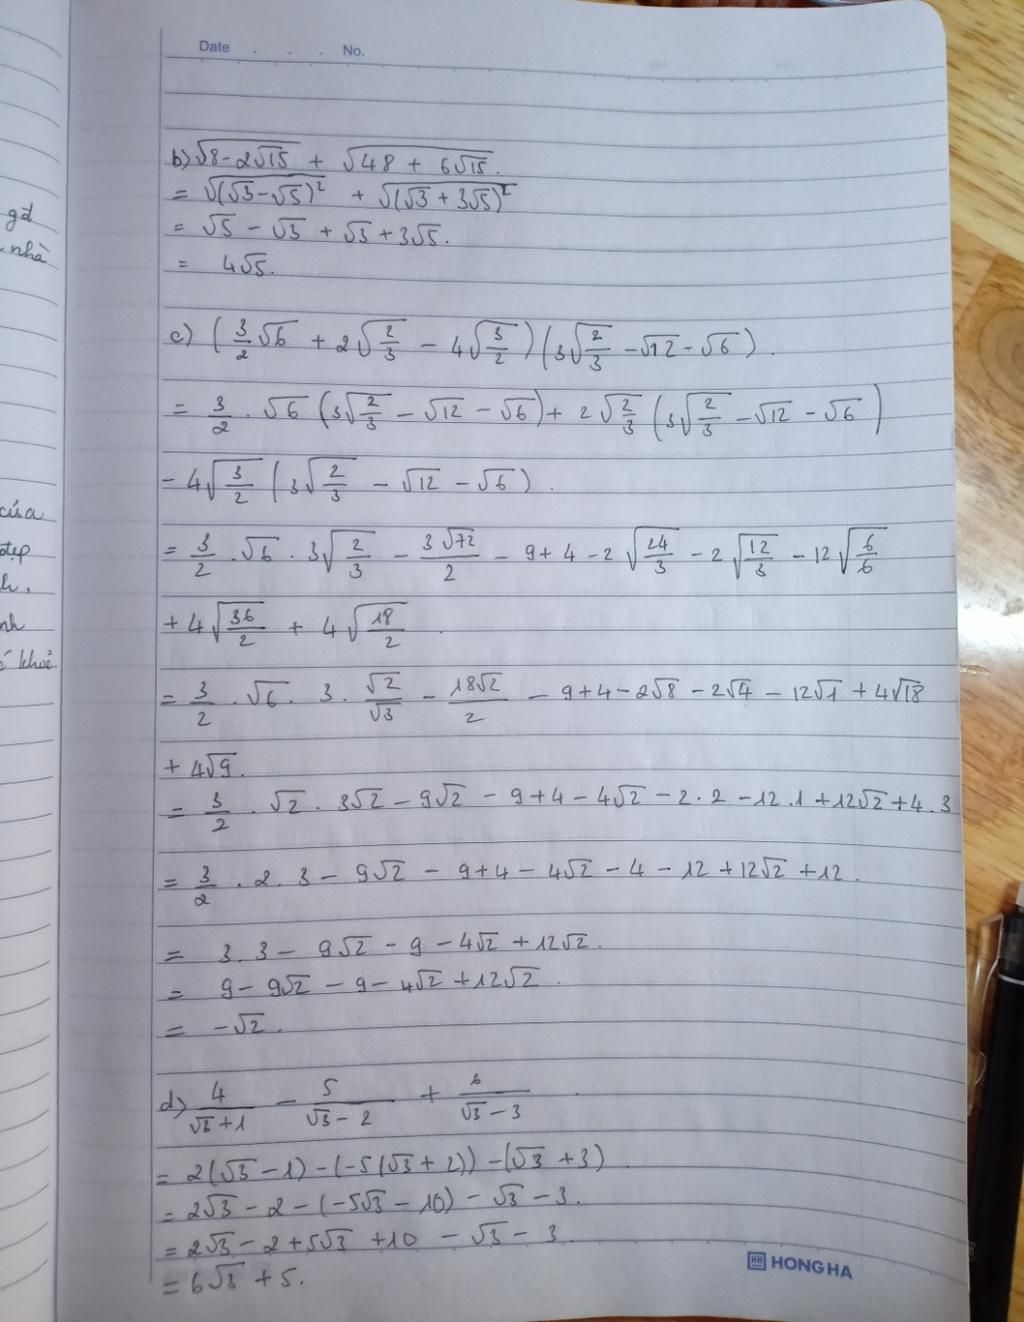 Date . . . No.
b) √(8-2√15) + √(48 + 6√15).
= √((√3-√5)²) + √((√3 + 3√5)²)
= √5 - √3 + √3 + 3√5.
= 4√5.
c) (3/2 √6 + 2√(2/3) - 4√(3/2)) (3√(2/3) - √12 - √6).
= 3/2 . √6 (3√(2/3) - √12 - √6) + 2√(2/3) (3√(2/3) - √12 - √6)
- 4√(3/2) (3√(2/3) - √12 - √6).
= 3/2 . √6 . 3√(2/3) - 3√72/2 - 9 + 4 - 2√(24/3) - 2√(12/3) - 12√(6/6)
+ 4√(36/2) + 4√(18/2).
= 3/2 . √6 . 3 . √2/√3 - 18√2/2 - 9 + 4 - 2√8 - 2√4 - 12√1 + 4√18
+ 4√9.
= 3/2 . √2 . 3√2 - 9√2 - 9 + 4 - 4√2 - 2.2 - 12.1 + 12√2 + 4.3
= 3/2 . 2 . 3 - 9√2 - 9 + 4 - 4√2 - 4 - 12 + 12√2 + 12.
= 3.3 - 9√2 - 9 - 4√2 + 12√2.
= 9 - 9√2 - 9 - 4√2 + 12√2.
= -√2.
d) 4/(√3 + 1) - 5/(√3 - 2) + 6/(√3 - 3).
= 2(√3 - 1) - (-5(√3 + 2)) - (√3 + 3)
= 2√3 - 2 - (-5√3 - 10) - √3 - 3.
= 2√3 - 2 + 5√3 + 10 - √3 - 3.
= 6√3 + 5.
HH HONG HA
gđ
nhà
của
đẹp
nh
khoẻ.